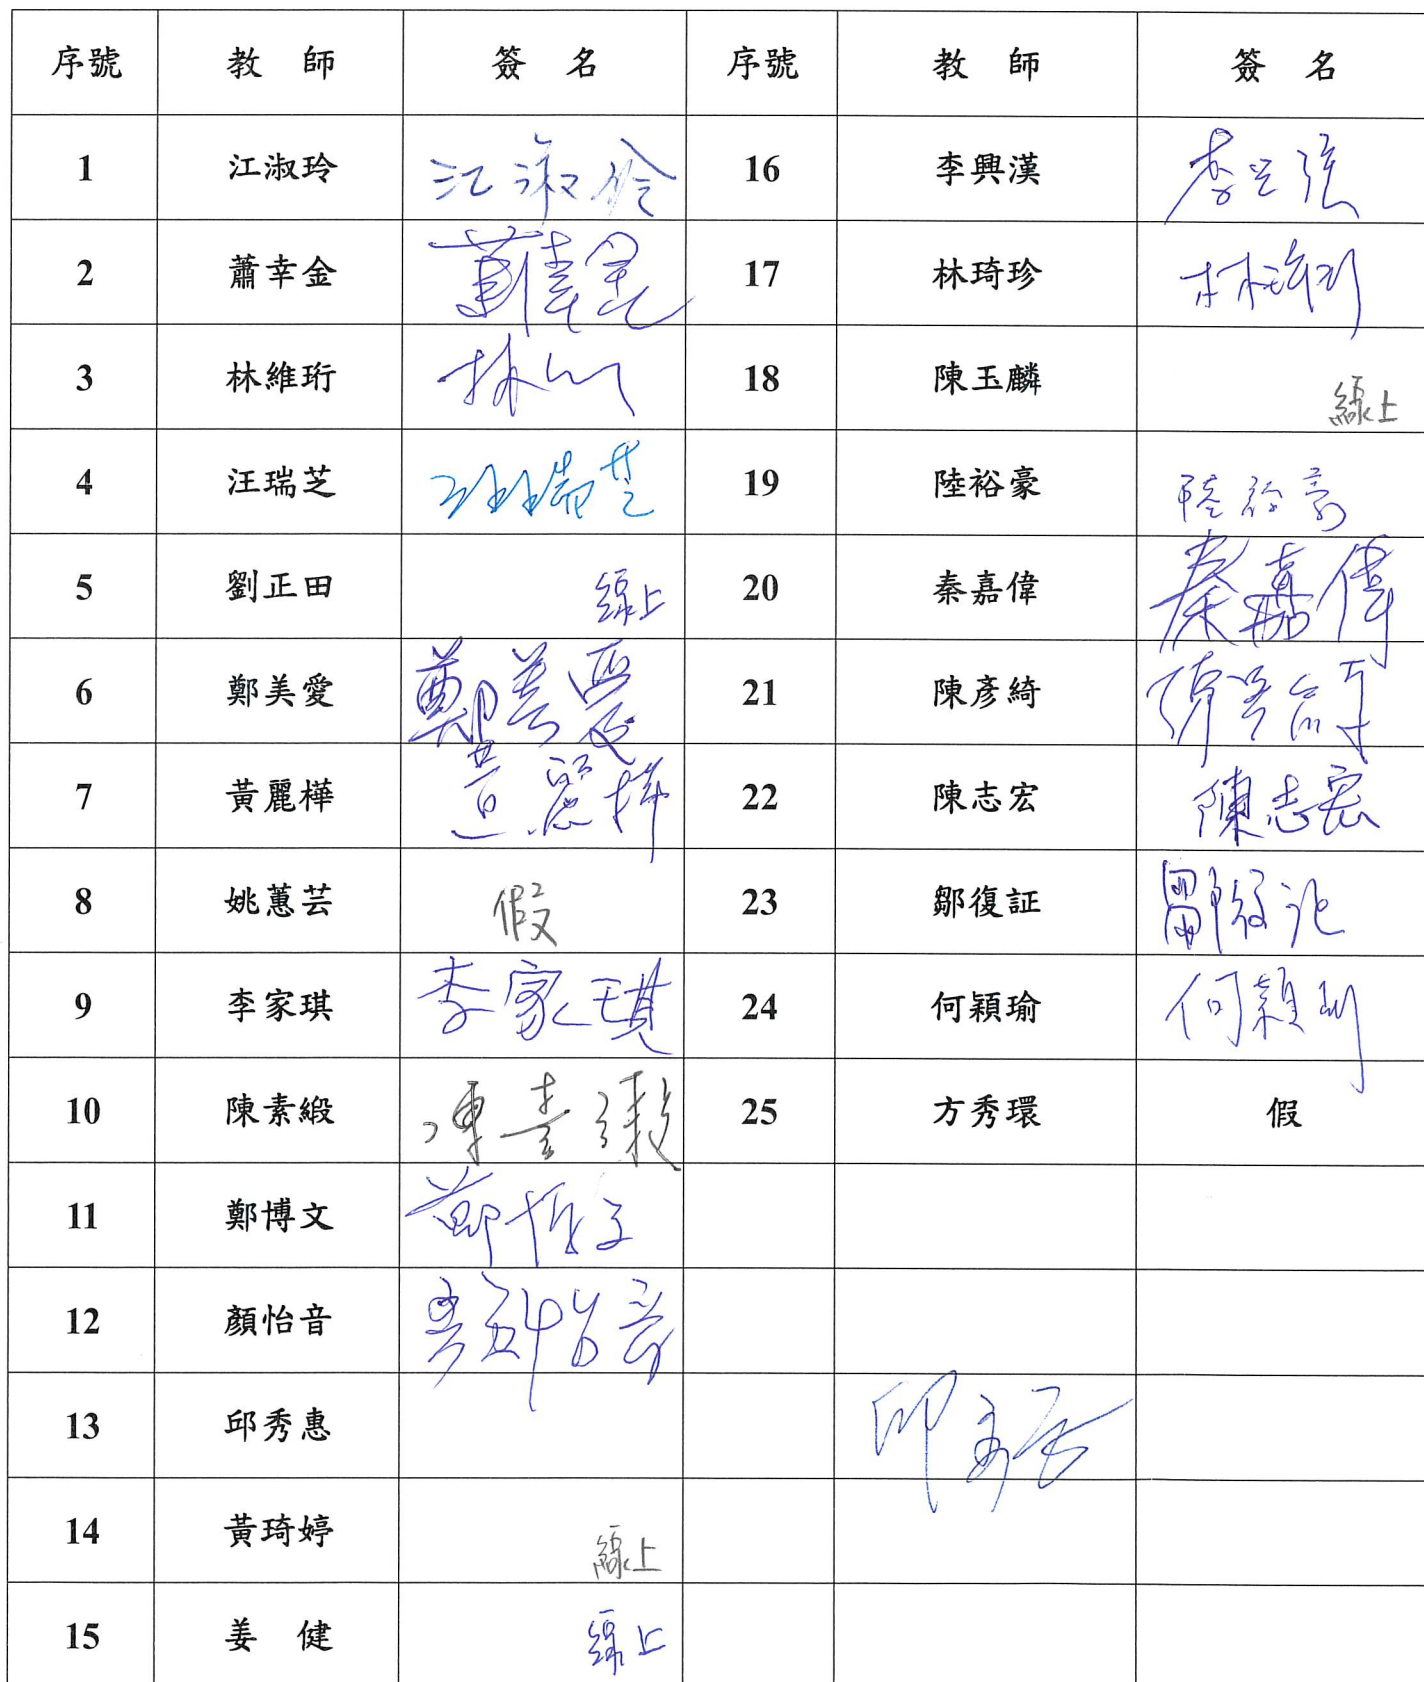 序號 教 師 簽 名 序號 教 師 簽 名
1 江淑玲 江淑伶 16 李興漢 李
2 蕭幸金 蕭幸金 17 林琦珍 林琦珍
3 林維珩 林 18 陳玉麟 線上
4 汪瑞芝 汪瑞芝 19 陸裕豪 陸裕豪
5 劉正田 線上 20 秦嘉偉 秦嘉偉
6 鄭美愛 鄭美愛 21 陳彥綺 陳彥綺
7 黃麗樺 黃麗樺 22 陳志宏 陳志宏
8 姚蕙芸 假 23 鄒復証 鄒復証
9 李家琪 李家琪 24 何穎瑜 何穎瑜
10 陳素緞 陳素緞 25 方秀環 假
11 鄭博文 鄭博文
12 顏怡音 顏怡音
13 邱秀惠 邱秀惠
14 黃琦婷 線上
15 姜 健 線上